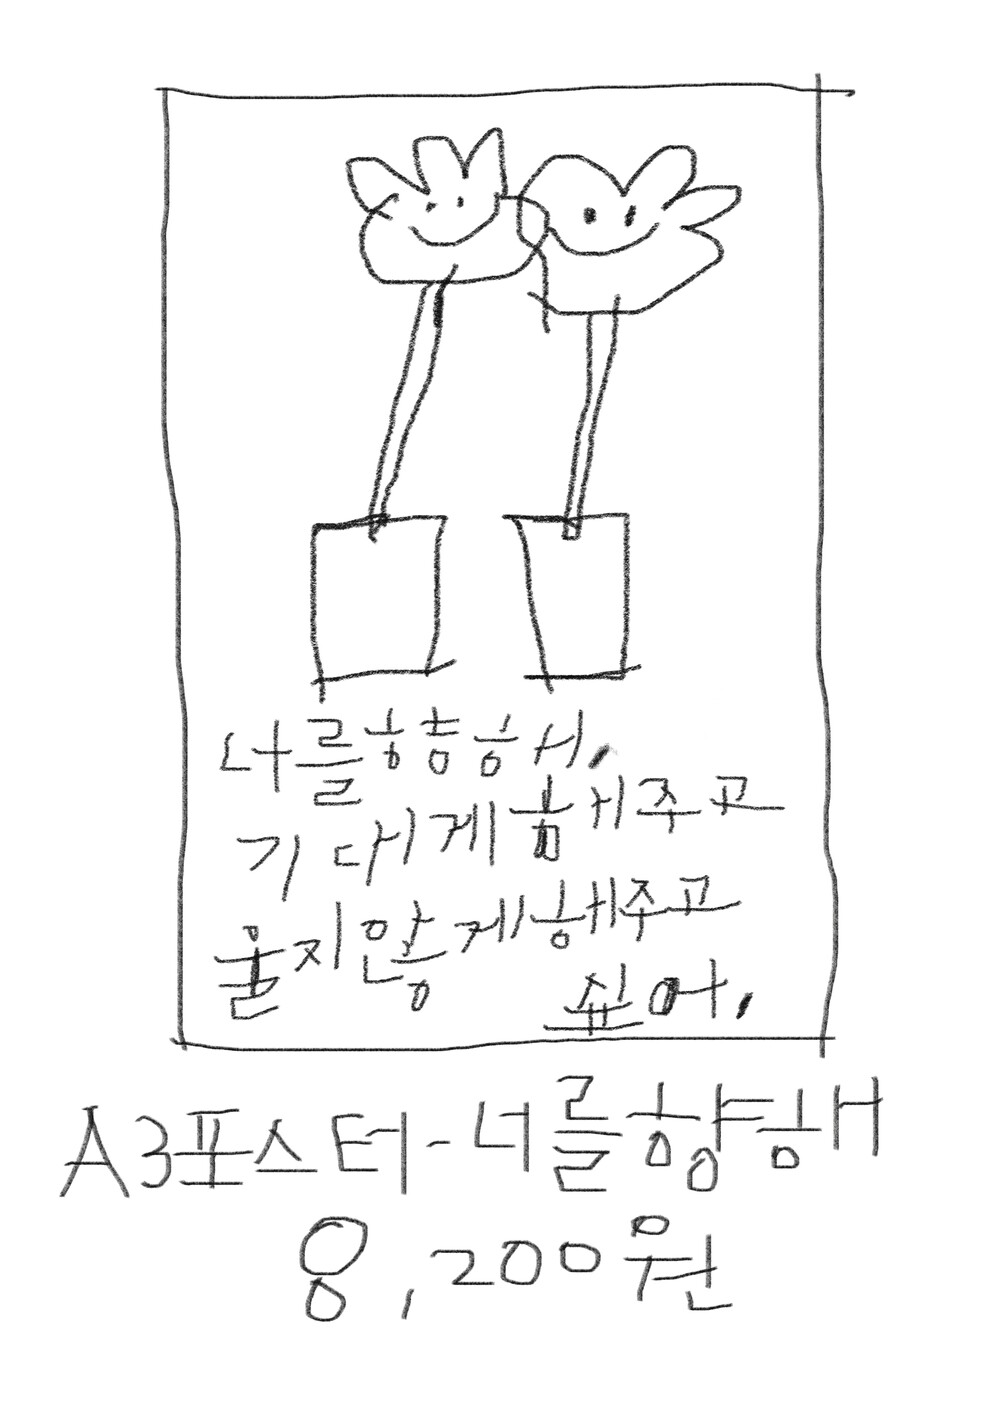 너를향해,
기대게 해주고
울지않게해주고
싶어.
A3포스터-너를향해
8,200원